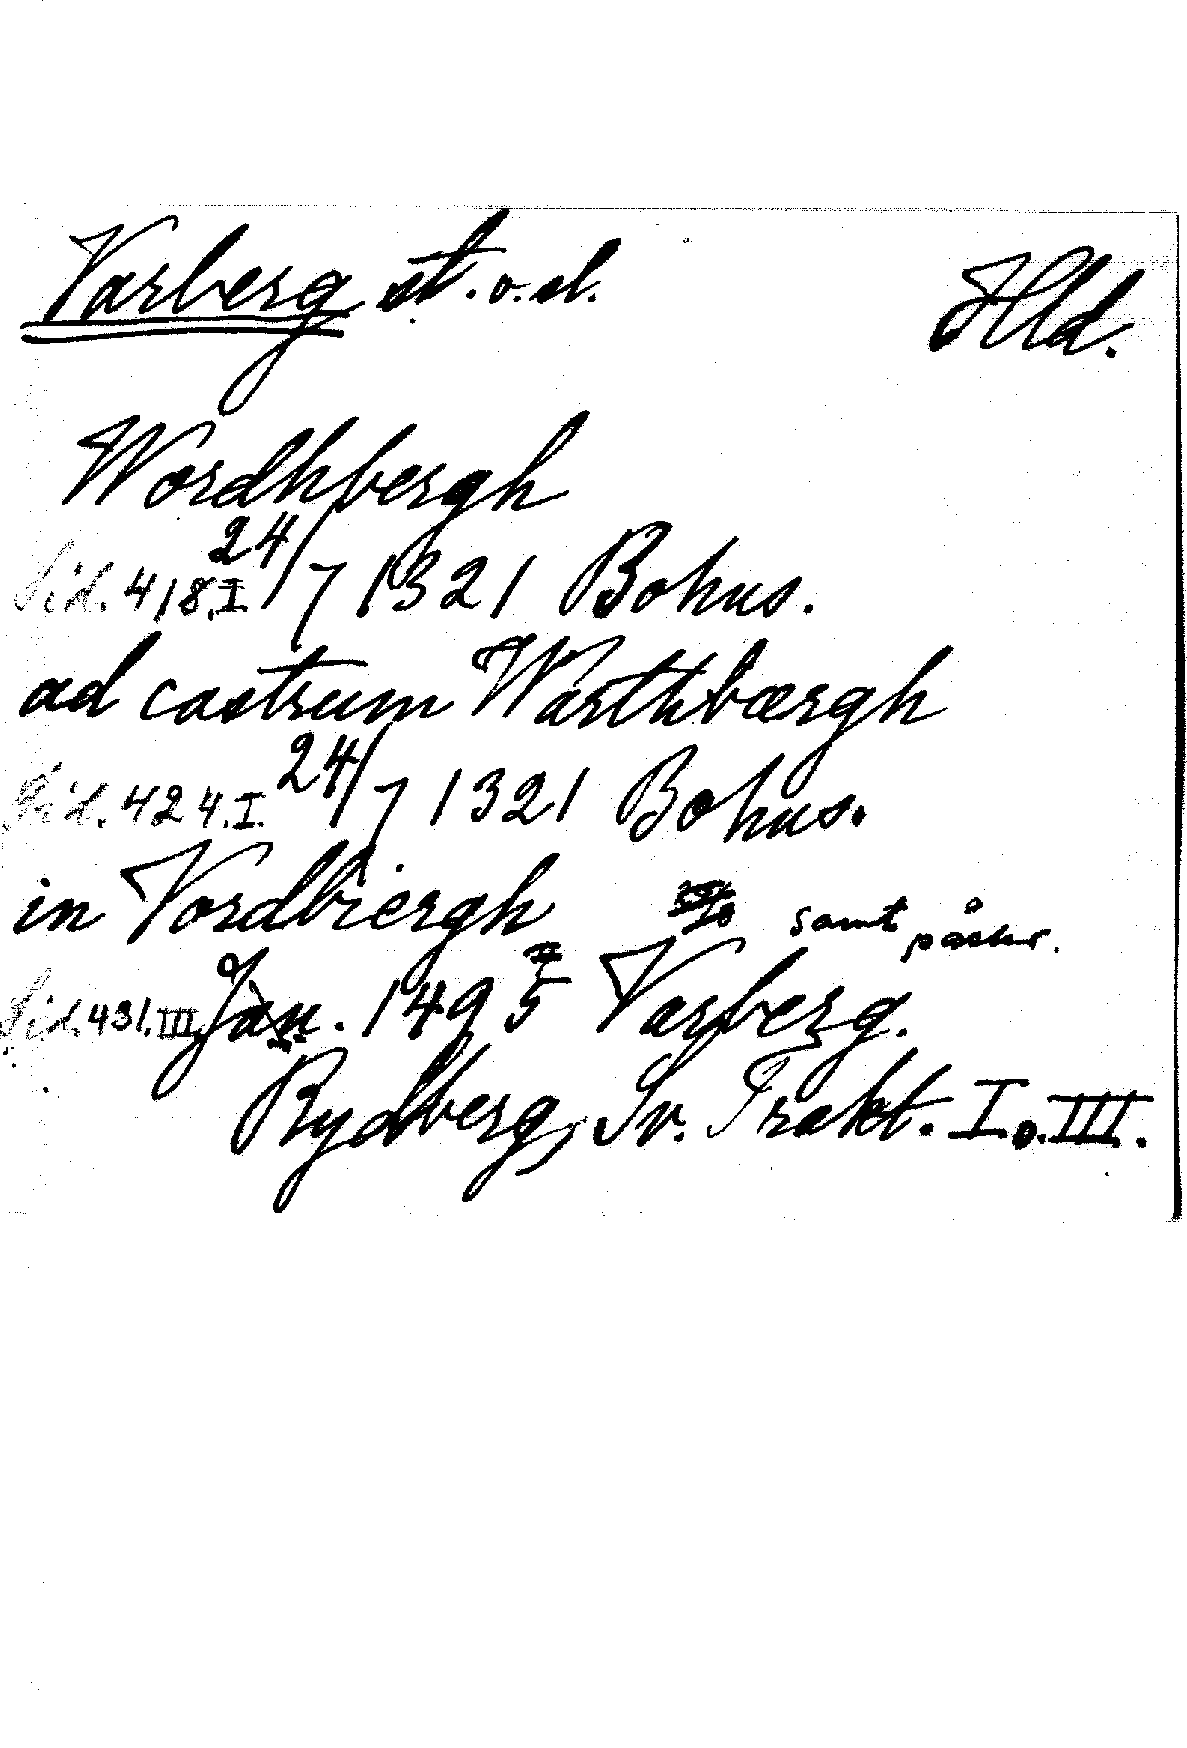 Varberg st. o. sl. Hld.
Wordhbergh
Sid. 418.I. 24/7 1321 Bohus.
ad castrum Warthbærgh
Sid. 424.I. 24/7 1321 Bohus.
in Vordbiergh samt påskr.
Sid. 431.III. Jan. 1495 Varberg.
Rydberg, Sv. Trakt. I. o. III.